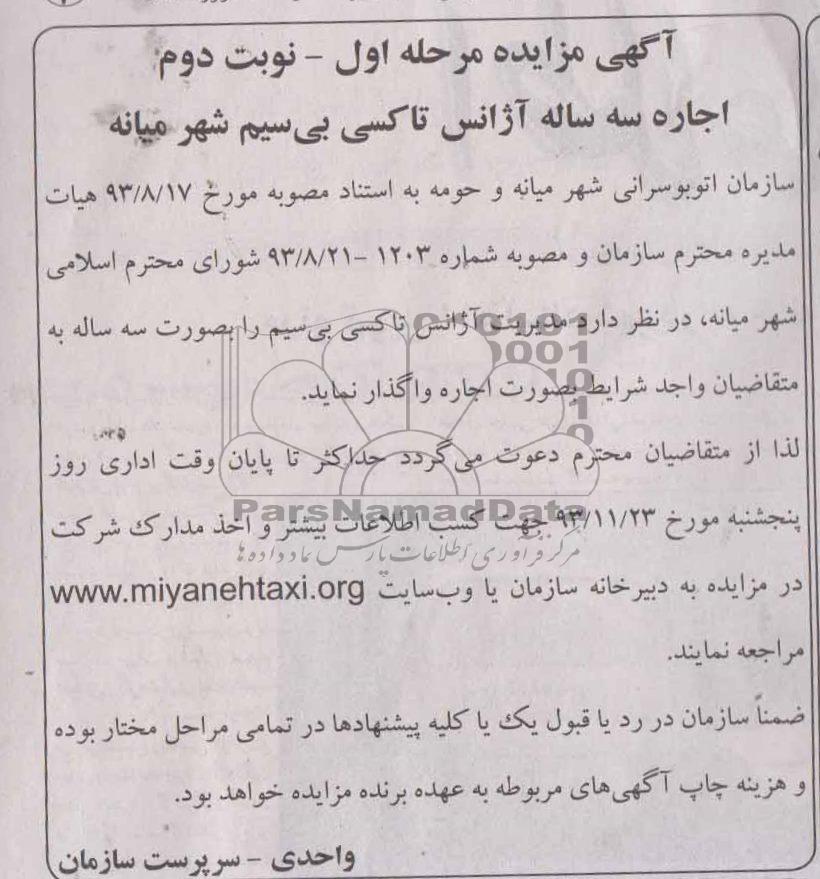 آگهی مزایده مرحله اول - نوبت دوم
اجاره سه ساله آژانس تاکسی بی‌سیم شهر میانه
سازمان اتوبوسرانی شهر میانه و حومه به استناد مصوبه مورخ ۹۳/۸/۱۷ هیات
مدیره محترم سازمان و مصوبه شماره ۱۲۰۳ -۹۳/۸/۲۱ شورای محترم اسلامی
شهر میانه، در نظر دارد مدیریت آژانس تاکسی بی‌سیم را بصورت سه ساله به
متقاضیان واجد شرایط بصورت اجاره واگذار نماید.
لذا از متقاضیان محترم دعوت می‌گردد حداکثر تا پایان وقت اداری روز
پنجشنبه مورخ ۹۳/۱۱/۲۳ جهت کسب اطلاعات بیشتر و اخذ مدارک شرکت
ParsNamadData
مرکز فرآوری اطلاعات پارس نماد داده ها
در مزایده به دبیرخانه سازمان یا وب‌سایت www.miyanehtaxi.org
مراجعه نمایند.
ضمناً سازمان در رد یا قبول یک یا کلیه پیشنهادها در تمامی مراحل مختار بوده
و هزینه چاپ آگهی‌های مربوطه به عهده برنده مزایده خواهد بود.
واحدی - سرپرست سازمان